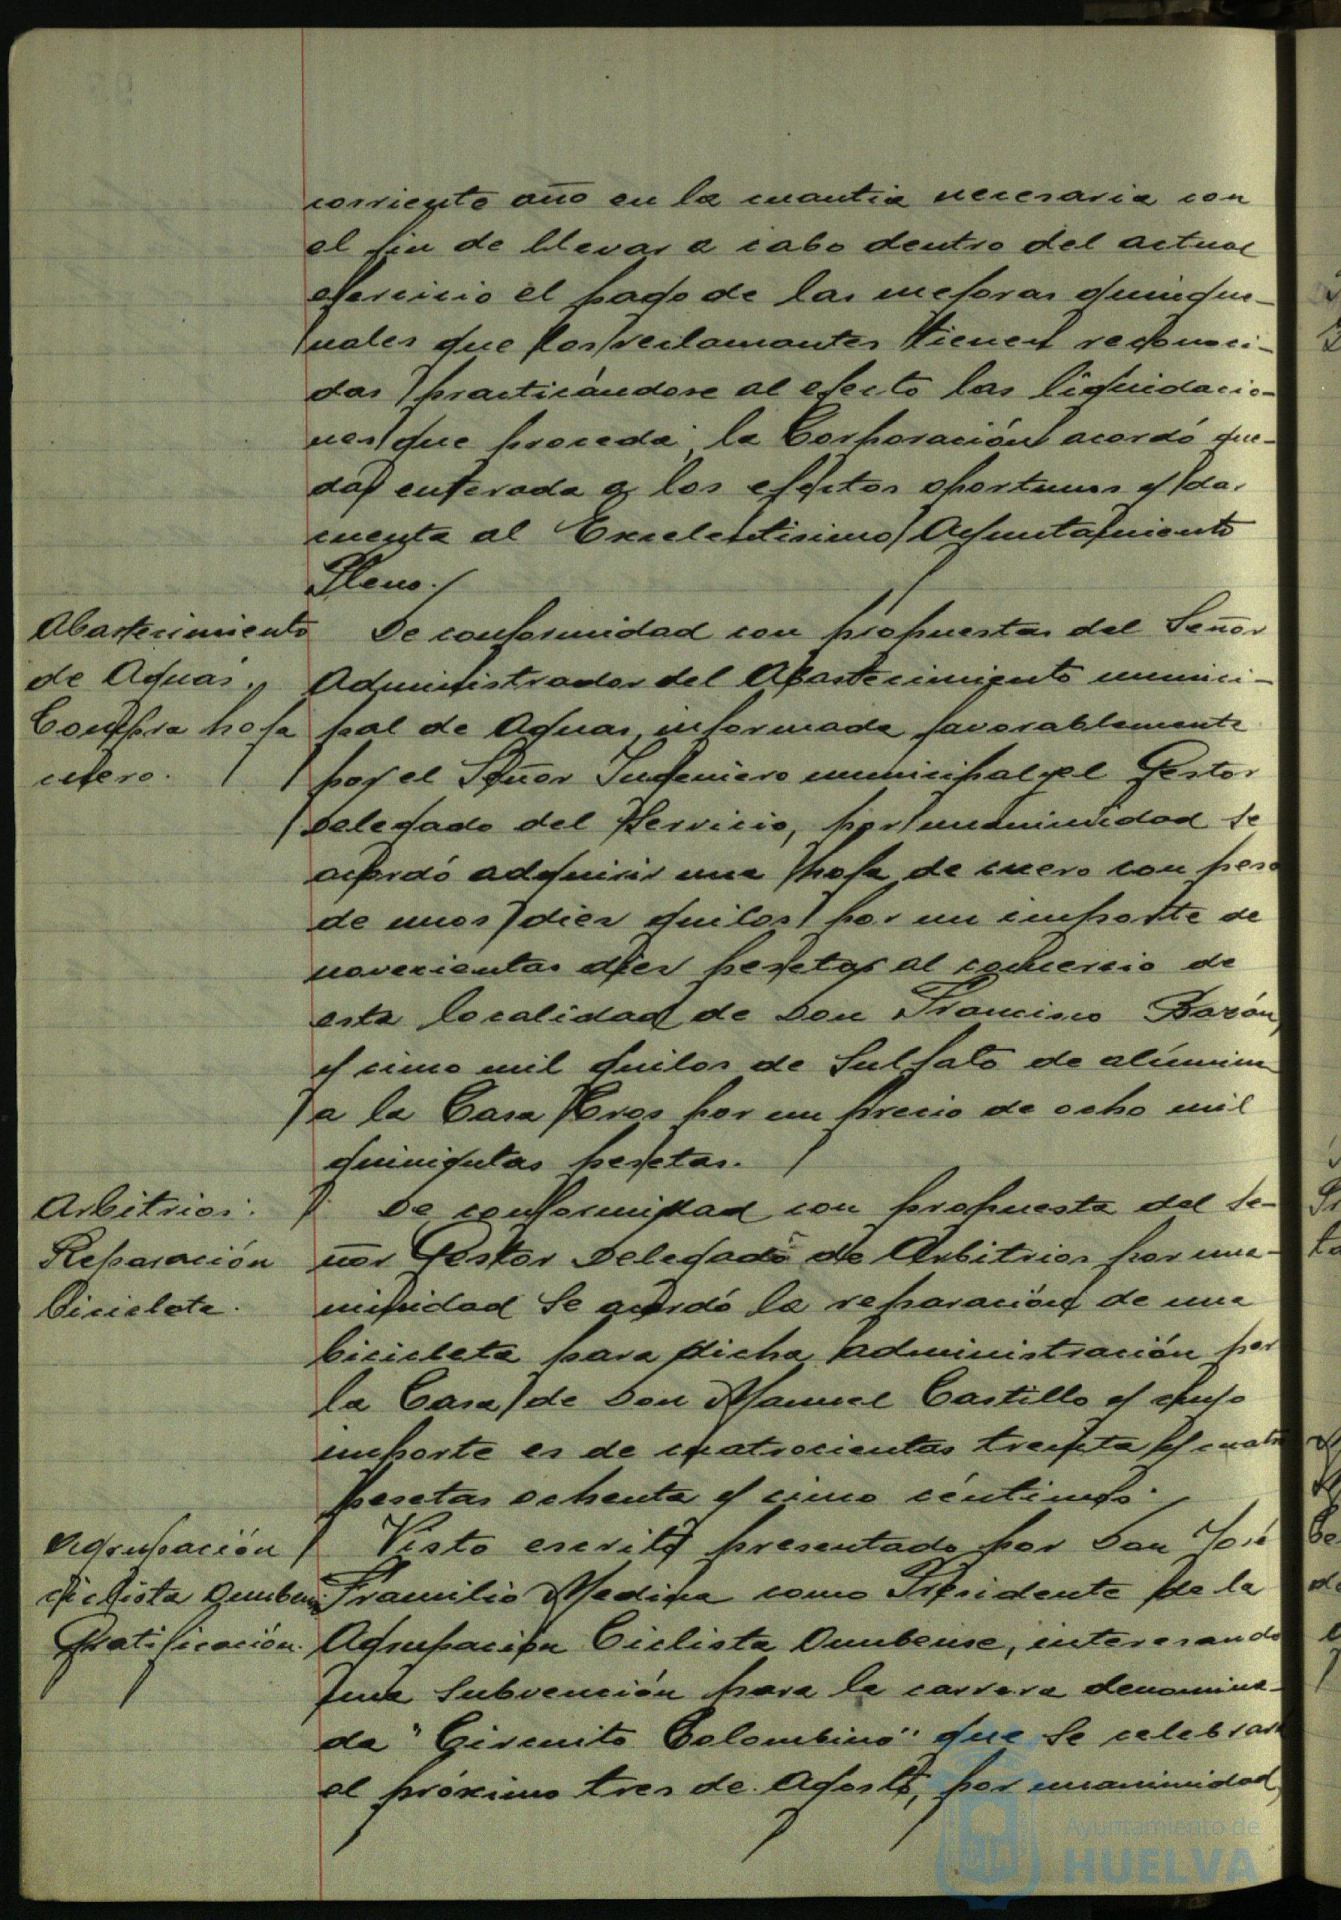 corriente año en la cuantia necesaria con
el fin de llevar a cabo dentro del actual
ejercicio el pago de las mejoras quinque-
nales que los reclamantes tienen reconoci-
das practicándose al efecto las liquidacio-
nes que proceda; la Corporación acordó que-
dar enterada a los efectos oportunos y dar
cuenta al Excelentisimo Ayuntamiento
Pleno.
Abastecimiento
de Aguas.
Compra hoja
cuero.
De conformidad con propuestas del Señor
Administrador del Abastecimiento munici-
pal de Aguas, informada favorablemente
por el Señor Ingeniero municipal y el Gestor
Delegado del Servicio, por unanimidad se
acordó adquirir una hoja de cuero con peso
de unos diez quilos por un importe de
novecientas diez pesetas al comercio de
esta localidad de Don Francisco Bazón,
y cinco mil quilos de Sulfato de alúmina
a la Casa Cros por un precio de ocho mil
quinientas pesetas.
Arbitrios:
Reparación
bicicleta.
De conformidad con propuesta del Se-
ñor Gestor Delegado de Arbitrios por una-
nimidad se acordó la reparación de una
bicicleta para dicha Administración por
la Casa de Don Manuel Castillo y cuyo
importe es de cuatrocientas treinta y cuatro
pesetas ochenta y cinco céntimos.
Agrupación
ciclista Onubense
Gratificación.
Visto escrito presentado por Don José
Framilio Medina como Presidente de la
Agrupación Ciclista Onubense, interesando
una subvención para la carrera denomina-
da "Circuito Colombino" que se celebrará
el próximo tres de Agosto, por unanimidad,
Ayuntamiento de
HUELVA